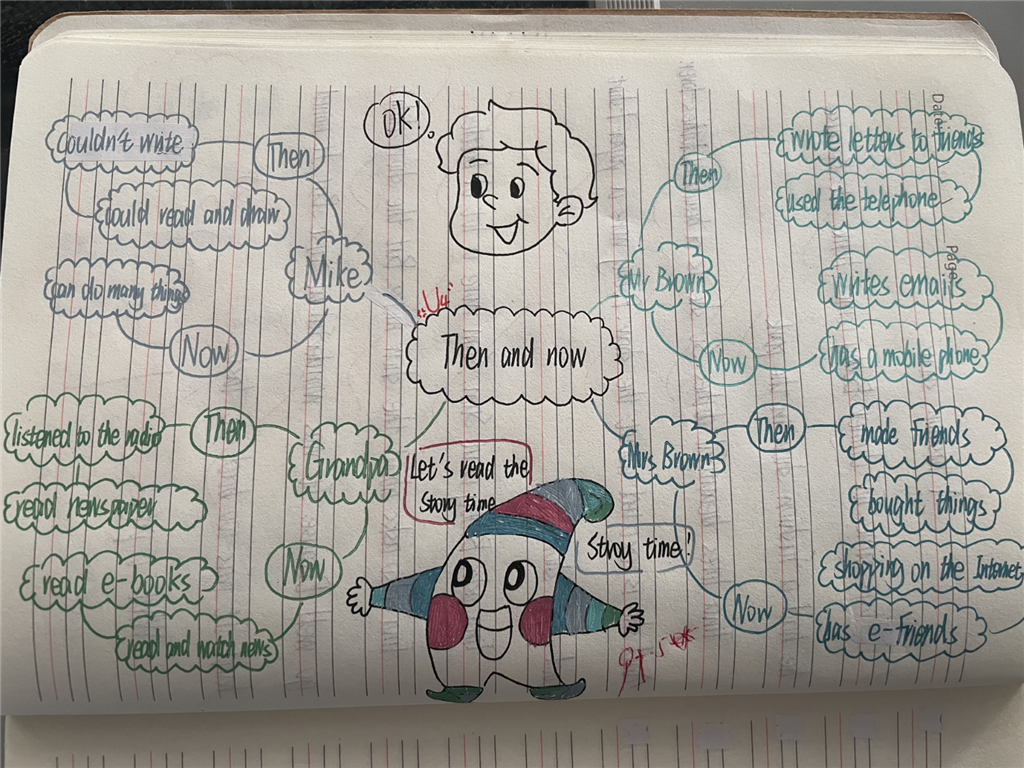 OK!
Couldn't write
Then
Could read and draw
Mike
can do many things
Now
Then
wrote letters to friends
used the telephone
Mr Brown
writes emails
Now
has a mobile phone
U4
Then and now
listened to the radio
Then
Grandpa
read newspaper
read e-books
Now
read and watch news
Let's read the
Story time
Stroy time!
Mrs Brown
Then
made friends
bought things
shopping on the Internet
Now
has e-friends
Page